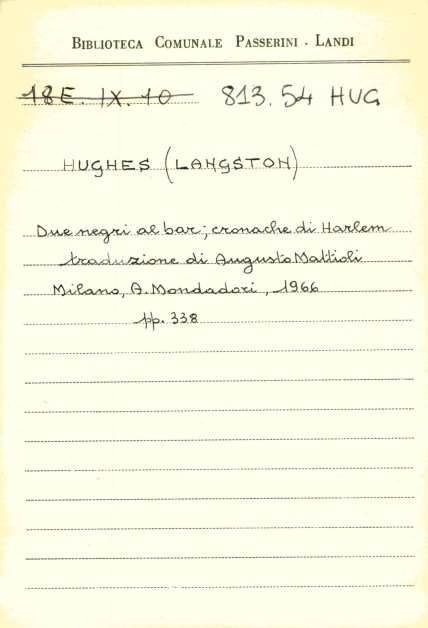 BIBLIOTECA COMUNALE PASSERINI - LANDI
18E. IX. 10 813.54 HUG
HUGHES (LANGSTON)
Due negri al bar; cronache di Harlem
traduzione di Augusto Mattioli
Milano, A. Mondadori, 1966
pp. 338